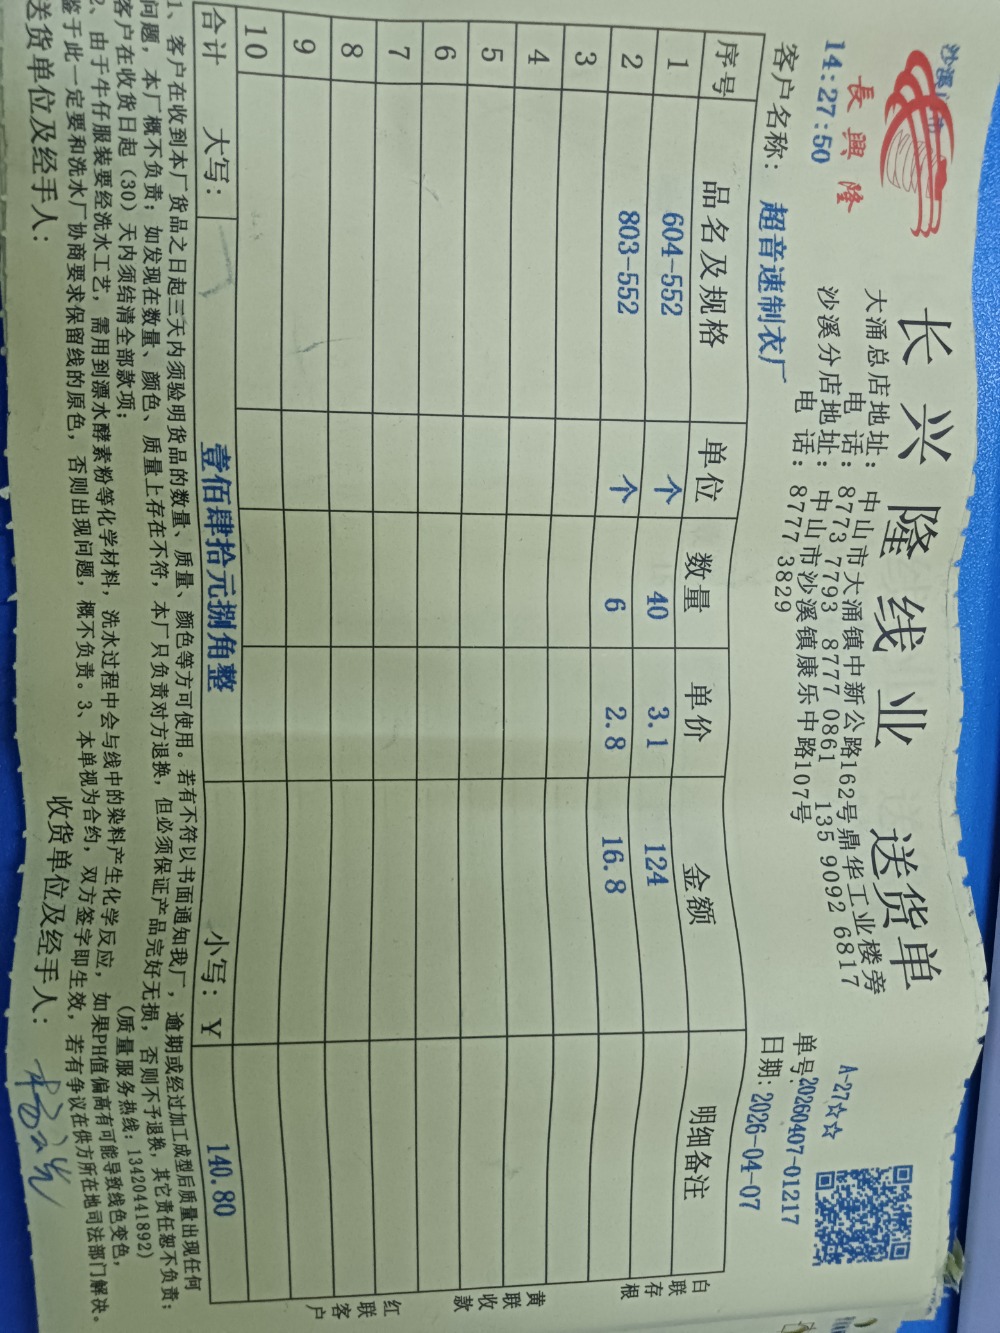 长兴隆线业 送货单
長興隆
14:27:50
A-27☆☆
大涌总店地址: 中山市大涌镇中新公路162号鼎华工业楼旁
电 话: 8773 7793 8777 0861 135 9092 6817
沙溪分店地址: 中山市沙溪镇康乐中路107号
电 话: 8777 3829
单号:20260407-01217
客户名称: 超音速制衣厂
日期:2026-04-07
序号 品名及规格 单位 数量 单价 金额 明细备注
1 604-552 个 40 3.1 124
2 803-552 个 6 2.8 16.8
3
4
5
6
7
8
9
10
合计 大写: 壹佰肆拾元捌角整 小写: ¥ 140.80
白联存根
黄联收款
红联客户
1、客户在收到本厂货品之日起三天内须验明货品的数量、质量、颜色等方可使用。若有不符以书面通知我厂，逾期或经过加工成型后质量出现任何
问题，本厂概不负责；如发现在数量、颜色、质量上存在不符，本厂只负责对方退换，但必须保证产品完好无损，否则不予退换，其它责任恕不负责；
客户在收货日起（30）天内须结清全部款项； (质量服务热线: 13420441892)
2、由于牛仔服装要经洗水工艺，需用到漂水酵素粉等化学材料，洗水过程中会与线中的染料产生化学反应，如果PH值偏高有可能导致线色变色，
鉴于此一定要和洗水厂协商要求保留线的原色，否则出现问题，概不负责。3、本单视为合约，双方签字即生效，若有争议在供方所在地司法部门解决。
送货单位及经手人: 收货单位及经手人: